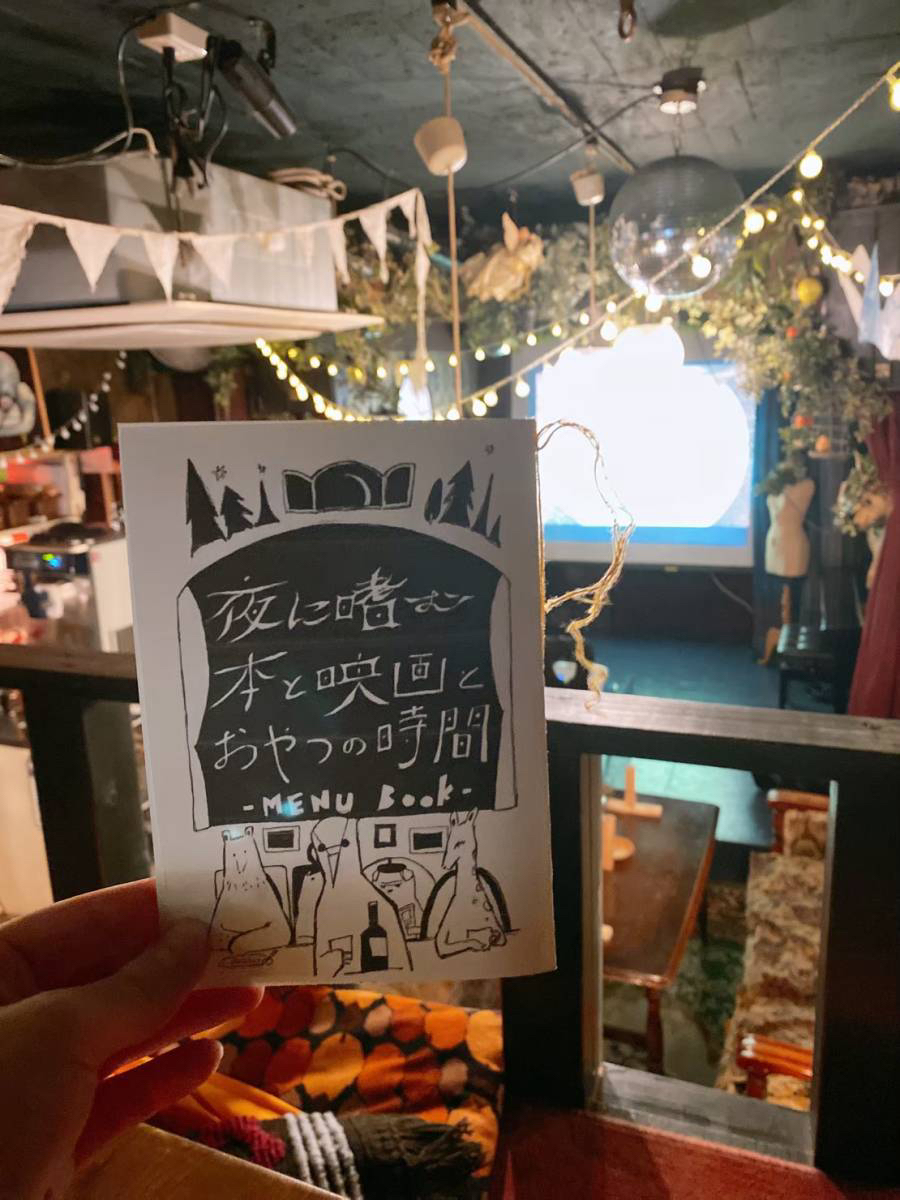 夜に嗜む
本と映画と
おやつの時間
-MENU BooK-